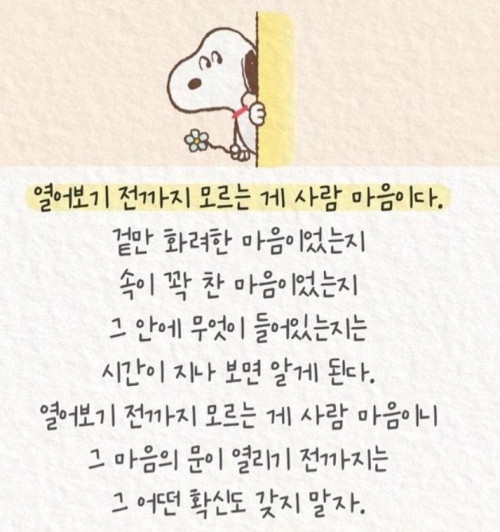 열어보기 전까지 모르는 게 사람 마음이다.
겉만 화려한 마음이었는지
속이 꽉 찬 마음이었는지
그 안에 무엇이 들어있는지는
시간이 지나 보면 알게 된다.
열어보기 전까지 모르는 게 사람 마음이니
그 마음의 문이 열리기 전까지는
그 어떤 확신도 갖지 말자.